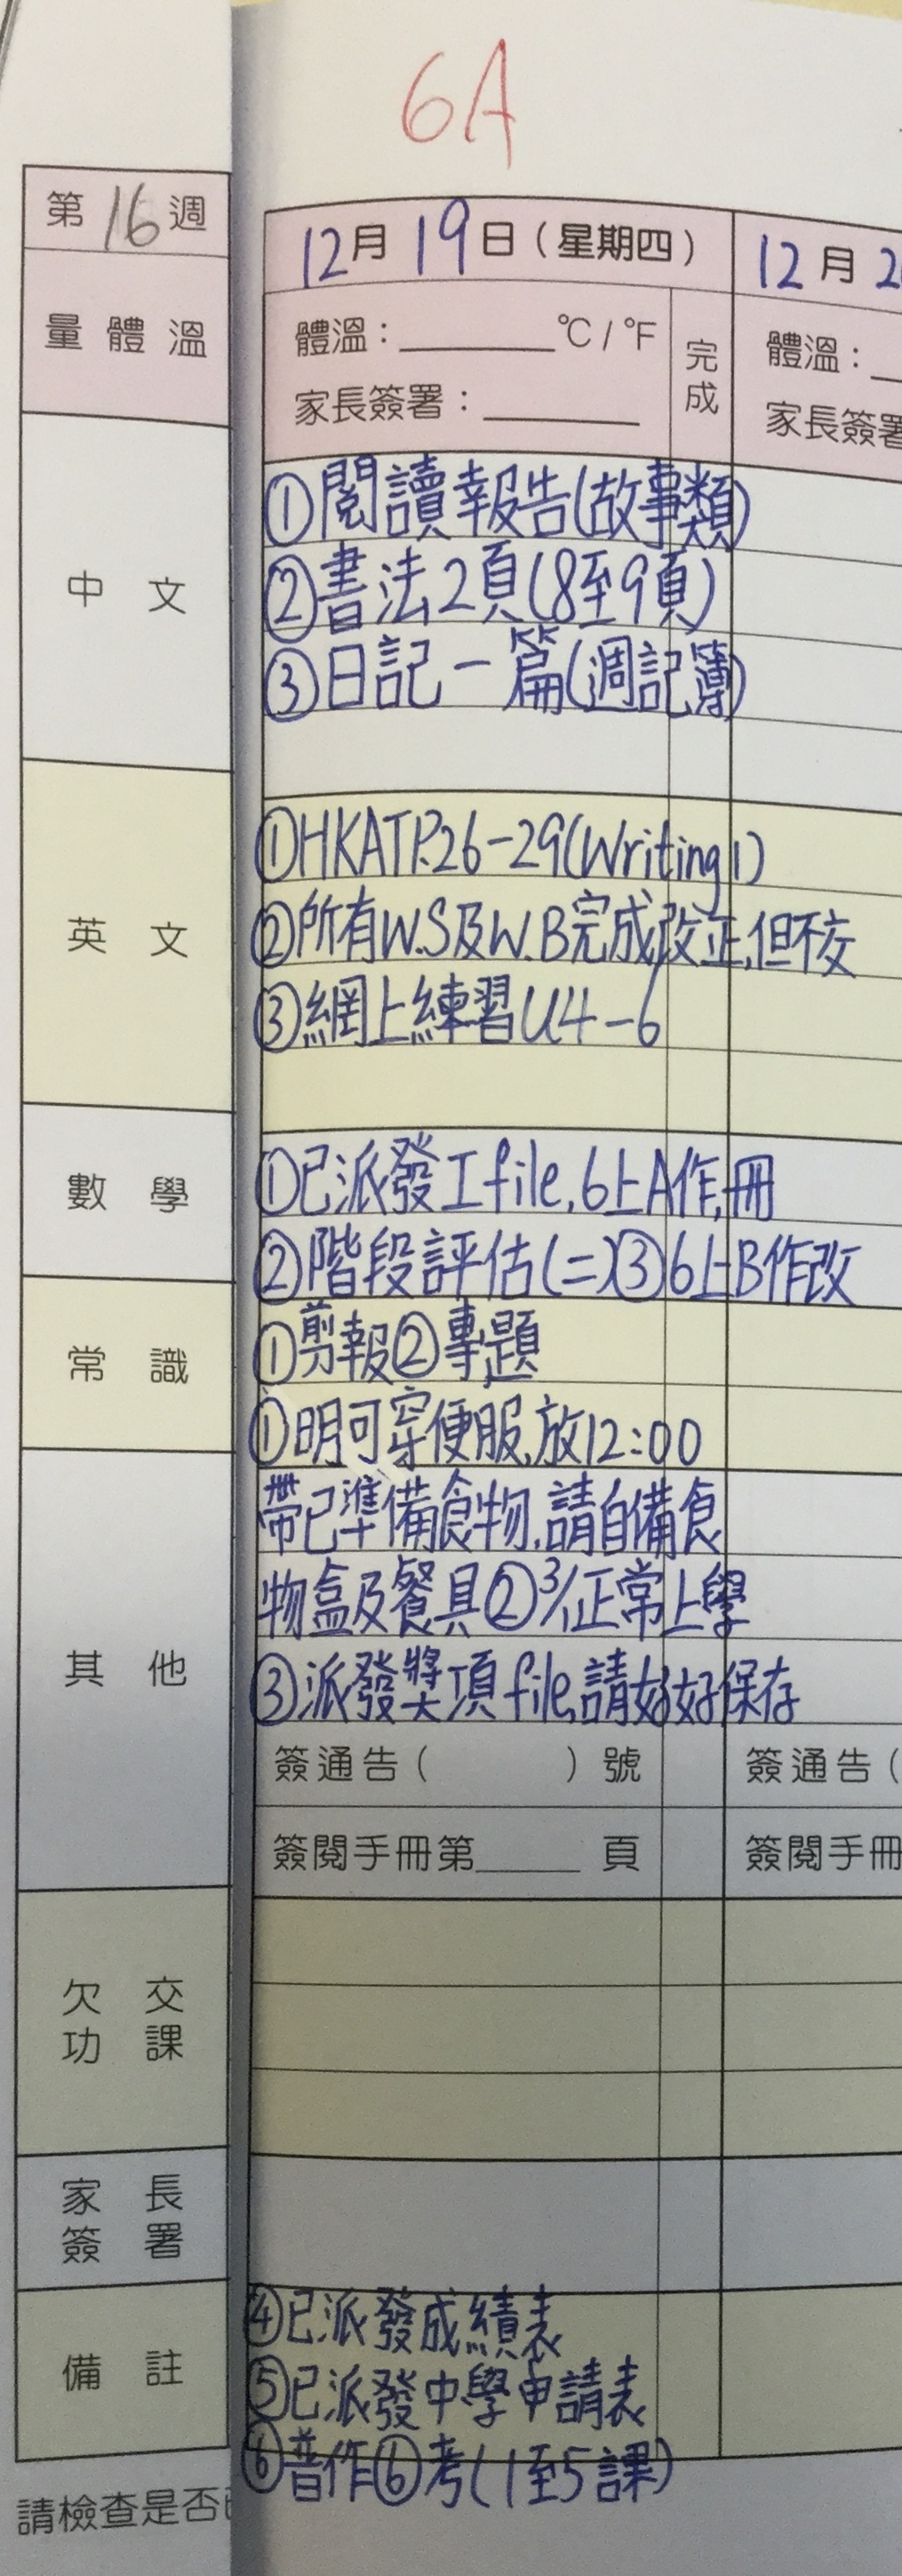 6A
第16週
12月19日(星期四)
12月2
量體溫
體溫：______℃/℉
完成
體溫：
家長簽署：______
家長簽署
中文
①閱讀報告(故事類)
②書法2頁(8至9頁)
③日記一篇(週記簿)
英文
①HKAT P.26-29(Writing 1)
②所有W.S及W.B完成改正,但不交
③網上練習U4-6
數學
①已派發工file,6上A作,冊
②階段評估(二)③6上B作改
常識
①剪報②專題
①明可穿便服,放12:00
其他
帶已準備食物,請自備食
物盒及餐具②3/1正常上學
③派發獎項file,請好好保存
簽通告(　　　)號
簽通告(
簽閱手冊第____頁
簽閱手冊
欠交
功課
家長
簽署
備註
④已派發成績表
⑤已派發中學申請表
⑥普作⑥考(1至5課)
請檢查是否